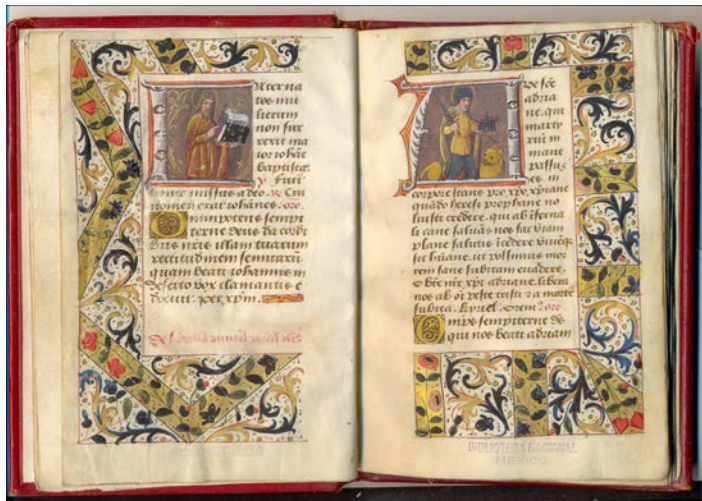 nter na
tos mu
lierum
non sur
rexit ma
ior iohãe
baptista.
v. Fuit
homo missus a deo. R. Cui
nomen erat iohãnes. oro.
Omnipotens sempi
terne deus da cordi
bus nr̃is illam tuarum
rectitudinem semitarũ
quam beati iohannis in
deserto vox clamantis e
docuit. per xp̃m.
De s.
Ave scẽ
adria
ne. qui
marty
rium in
mane
passus
es. in
corpore stans pro xp̃o. xp̃iane
quãdo heresi prophane no
luisti credere. qui ab iferna
li cane saluas nos fac viam
plane salutis
sic hũane. ut possimus mor
tem sane subitam euadere.
O adriane. libera
nos ab oĩ peste tristi z a morte
subita. Kyriel. Orem oro.
Omps sempiterne de
qui nos beati adriani
BIBLIOTECA NACIONAL
MEXICO